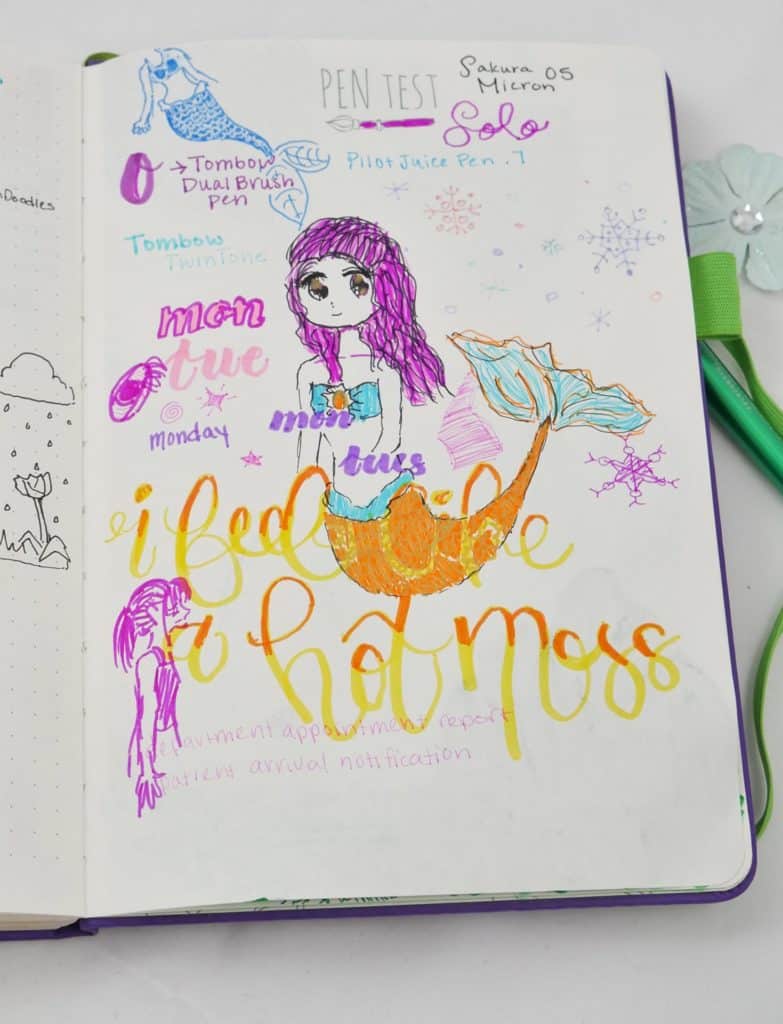 PEN TEST
Sakura 05
Micron
Solo
→Tombow
Dual Brush
Pen
Pilot Juice Pen .7
Tombow
TwinTone
Doodles
mon
tue
mon
monday
tues
i feel like
a hot moss
department appointment report
patient arrival notification